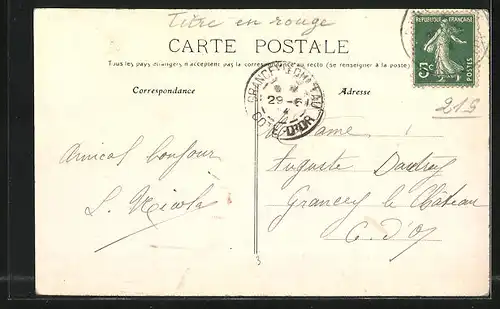 Titre en rouge
CARTE POSTALE
Tous les pays étrangers n'acceptent pas la correspondance au recto (se renseigner à la poste)
Correspondance
Adresse
REPUBLIQUE FRANÇAISE
5c
POSTES
GRANCEY-LE-CHATEAU
29-6
COTE-D'OR
219
Amical bonjour
Madame
Auguste
Grancey le Château
C. d'Or
3